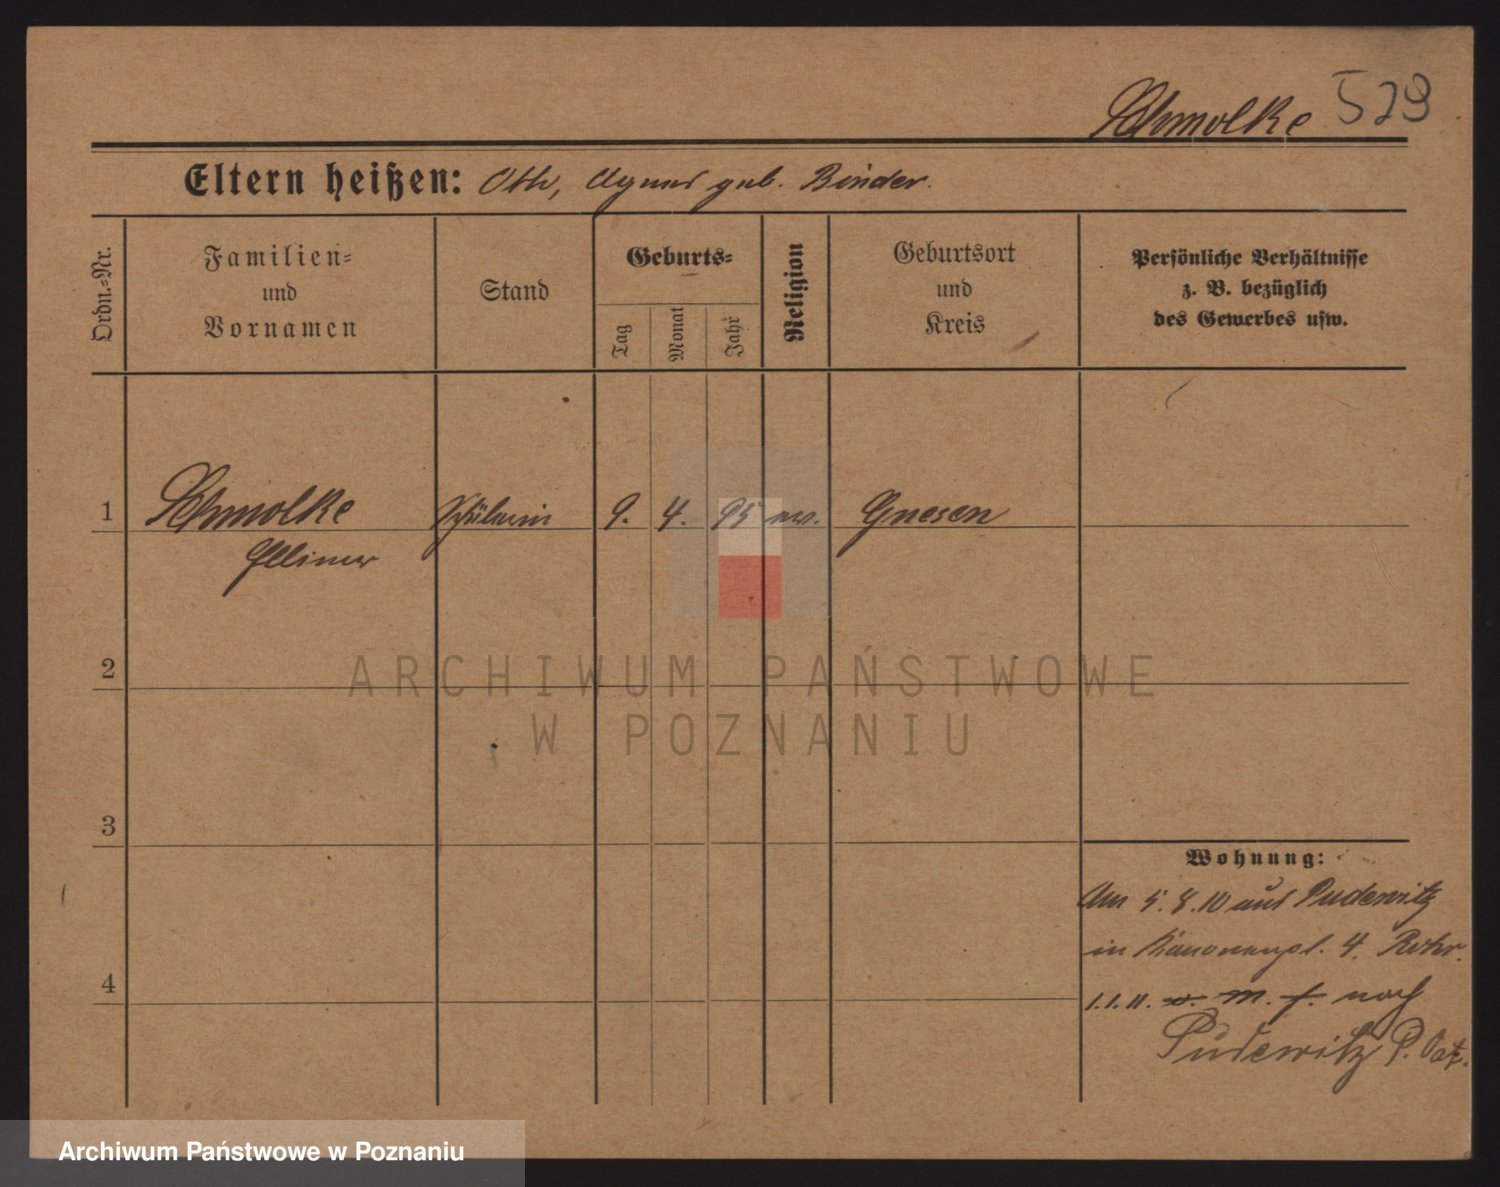 Schmolke 529
Eltern heißen: Otto, Agnes geb. Binder.
Ordn.-Nr.
Familien-
und
Vornamen
Stand
Geburts-
Tag
Monat
Jahr
Religion
Geburtsort
und
Kreis
Persönliche Verhältnisse
z. B. bezüglich
des Gewerbes usw.
1 Schmolke Schülerin 9. 4. 95 ev. Gnesen
2
3
4
Wohnung:
Am 5.8.10 aus Pudewitz
in Kanonenpl. 4. Rohr.
1.1.11. v. m. f. nach
Pudewitz P. Ost.
ARCHIWUM PAŃSTWOWE
W POZNANIU
Archiwum Państwowe w Poznaniu